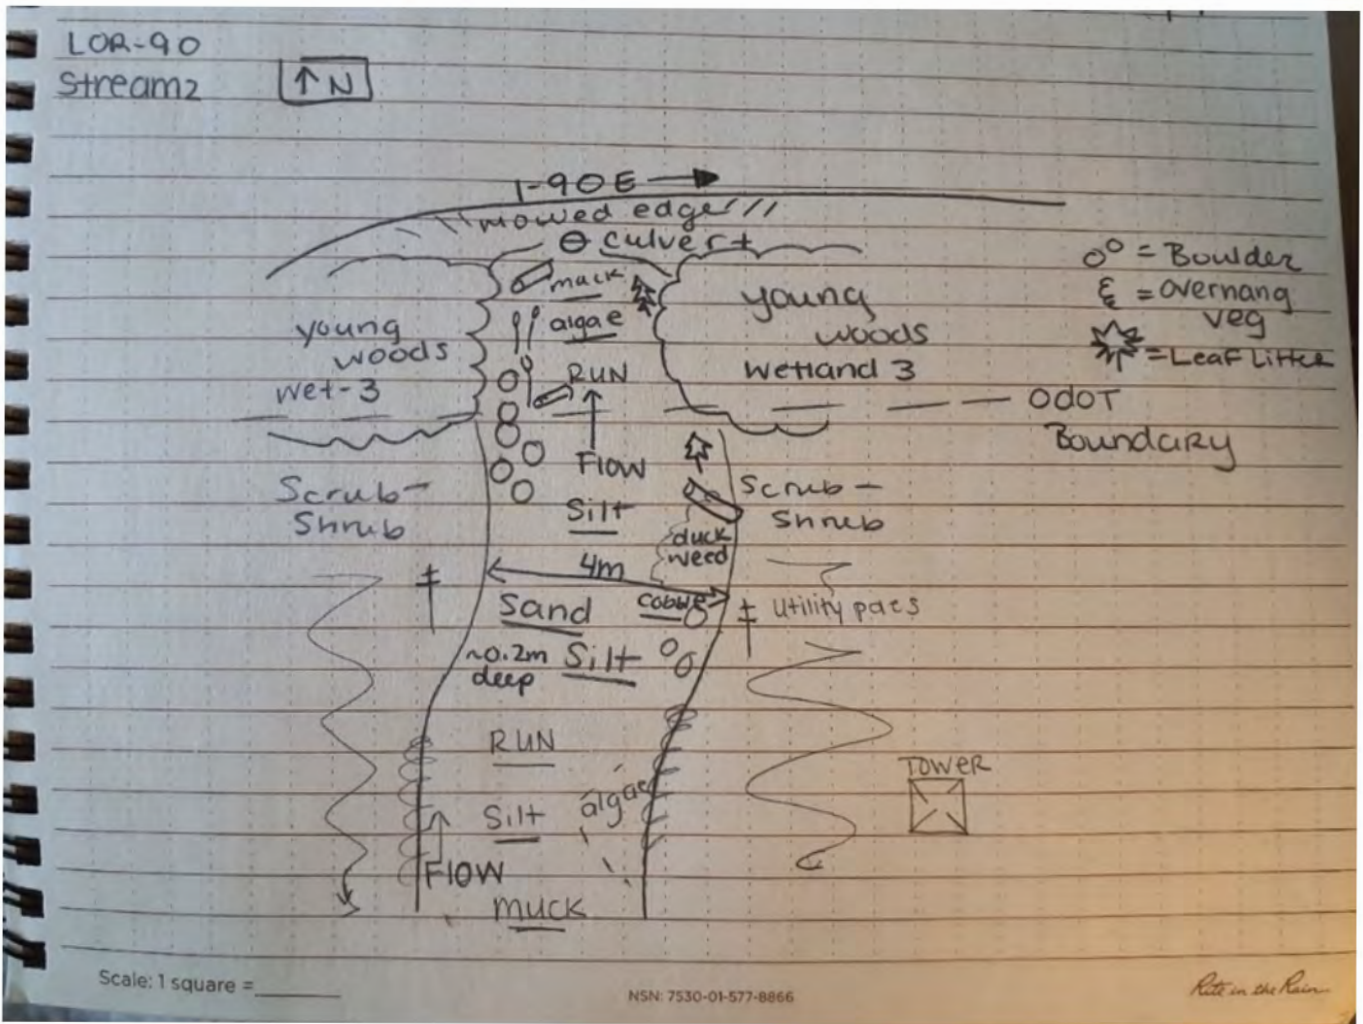 LOR-90
Stream2
↑ N
I-90E →
mowed edge
culvert
muck
algae
RUN
young
woods
wet-3
young
woods
wetland 3
= Boulder
= overhang
veg
= Leaf Litter
ODOT
Boundary
Flow
Silt
Scrub-
Shrub
Scrub-
Shrub
duck
weed
4m
Sand
~0.2m
deep
Silt
Utility
RUN
Silt
algae
Flow
muck
TOWER
Scale: 1 square =
NSN: 7530-01-577-8866
Rite in the Rain